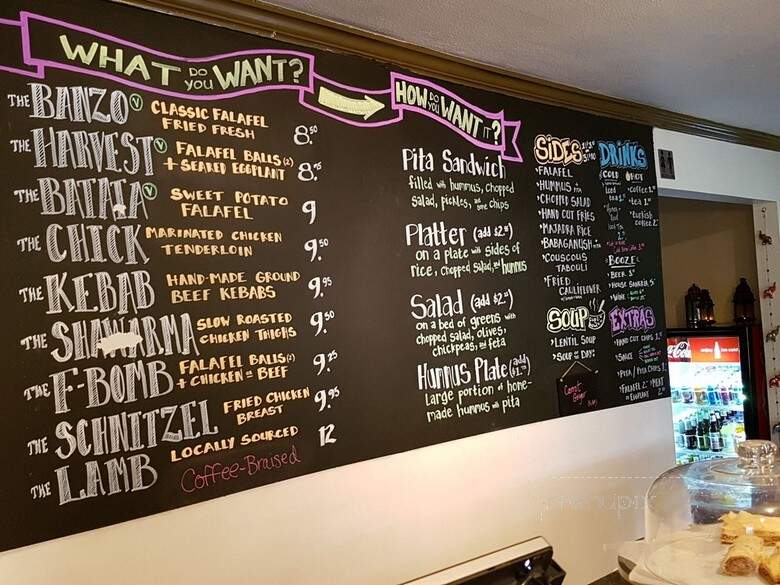 WHAT DO YOU WANT?
THE BANZO V CLASSIC FALAFEL
FRIED FRESH 8.50
THE HARVEST V FALAFEL BALLS (2)
+ SEARED EGGPLANT 8.75
THE BATATA V SWEET POTATO
FALAFEL 9
THE CHICK MARINATED CHICKEN
TENDERLOIN 9.50
THE KEBAB HAND-MADE GROUND
BEEF KEBABS 9.95
THE SHAWARMA SLOW ROASTED
CHICKEN THIGHS 9.50
THE F-BOMB FALAFEL BALLS (2)
+ CHICKEN OR BEEF 9.25
THE SCHNITZEL FRIED CHICKEN
BREAST 9.95
THE LAMB LOCALLY SOURCED 12
Coffee-Braised
HOW DO YOU WANT IT?
Pita Sandwich
filled with hummus, chopped
salad, pickles, and some chips
Platter (add $2.00)
on a plate with sides of
rice, chopped salad, and hummus
Salad (add $2.00)
on a bed of greens with
chopped salad, olives,
chickpeas, and feta
Hummus Plate (add
Large portion of home-
made hummus with pita
SIDES
FALAFEL
HUMMUS
CHOPPED SALAD
HAND CUT FRIES
MAJADRA RICE
BABAGANUSH
COUSCOUS
TABOULI
FRIED
CAULIFLOWER
SOUP
LENTIL SOUP
SOUP OF THE DAY:
Carrot
Ginger
DRINKS
COLD HOT
Iced
tea
coffee
tea
turkish
coffee
Iced
Tea
BOOZE
BEER
HOUSE SANGRIA
WINE
EXTRAS
HAND CUT CHIPS
SAUCE
PITA / PITA CHIPS
FALAFEL MEAT
OR EGGPLANT
Coca-Cola